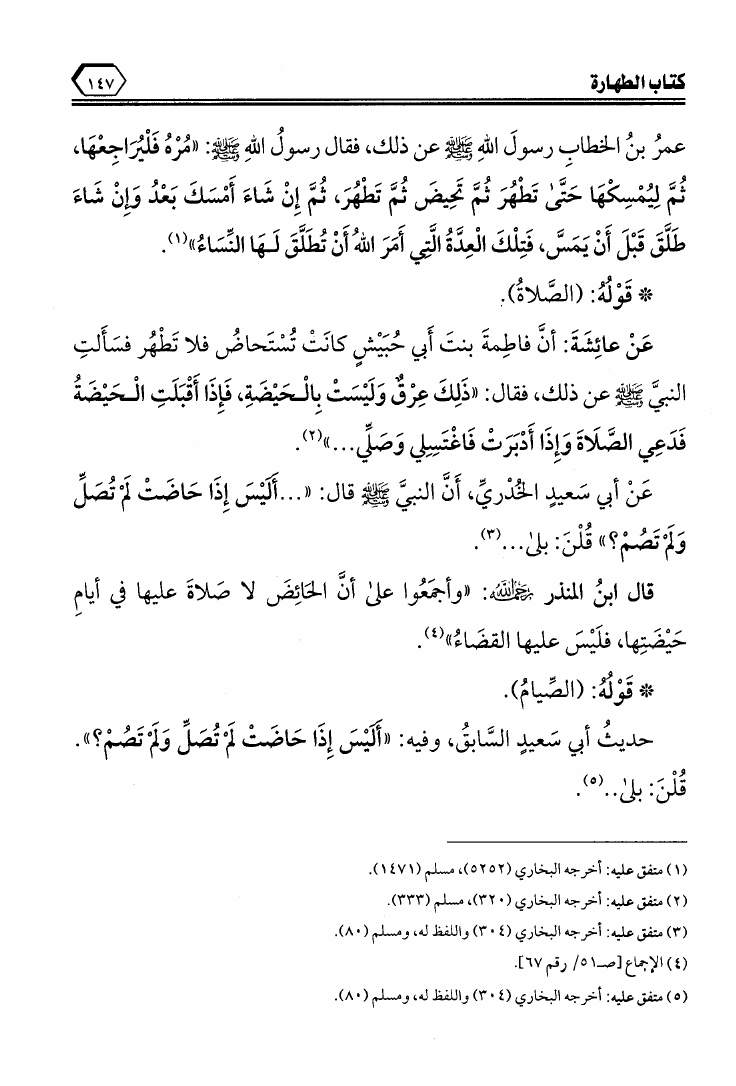 كتاب الطهارة
١٤٧
عمرُ بنُ الخطابِ رسولَ اللهِ ﷺ عن ذلك، فقال رسولُ اللهِ ﷺ: «مُرْهُ فَلْيُرَاجِعْهَا،
ثُمَّ لِيُمْسِكْهَا حَتَّىٰ تَطْهُرَ ثُمَّ تَحِيضَ ثُمَّ تَطْهُرَ، ثُمَّ إِنْ شَاءَ أَمْسَكَ بَعْدُ وَإِنْ شَاءَ
طَلَّقَ قَبْلَ أَنْ يَمَسَّ، فَتِلْكَ الْعِدَّةُ الَّتِي أَمَرَ اللهُ أَنْ تُطَلَّقَ لَـهَا النِّسَاءُ»(١).
* قَوْلُهُ: (الصَّلاةُ).
عَنْ عائِشَةَ: أنَّ فاطِمةَ بنتَ أبي حُبَيْشٍ كانَتْ تُسْتَحاضُ فلا تَطْهُر فسَأَلتِ
النبيَّ ﷺ عن ذلك، فقال: «ذَلِكَ عِرْقٌ وَلَيْسَتْ بِالْـحَيْضَةِ، فَإِذَا أَقْبَلَتِ الْـحَيْضَةُ
فَدَعِي الصَّلَاةَ وَإِذَا أَدْبَرَتْ فَاغْتَسِلِي وَصَلِّي...»(٢).
عَنْ أبي سَعيدٍ الخُدْريِّ، أنَّ النبيَّ ﷺ قال: «...أَلَيْسَ إِذَا حَاضَتْ لَمْ تُصَلِّ
وَلَمْ تَصُمْ؟» قُلْنَ: بلىٰ...(٣).
قال ابنُ المنذر رَحِمَهُ اللَّهُ: «وأجمَعُوا علىٰ أنَّ الحَائِضَ لا صَلاةَ عليها في أيامِ
حَيْضَتِها، فلَيْسَ عليها القضَاءُ»(٤).
* قَوْلُهُ: (الصِّيامُ).
حديثُ أبي سَعيدٍ السَّابقُ، وفيه: «أَلَيْسَ إِذَا حَاضَتْ لَمْ تُصَلِّ وَلَمْ تَصُمْ؟».
قُلْنَ: بلىٰ..(٥).
(١) متفق عليه: أخرجه البخاري (٥٢٥٢)، مسلم (١٤٧١).
(٢) متفق عليه: أخرجه البخاري (٣٢٠)، مسلم (٣٣٣).
(٣) متفق عليه: أخرجه البخاري (٣٠٤) واللفظ له، ومسلم (٨٠).
(٤) الإجماع [صـ٥١/ رقم ٦٧].
(٥) متفق عليه: أخرجه البخاري (٣٠٤) واللفظ له، ومسلم (٨٠).